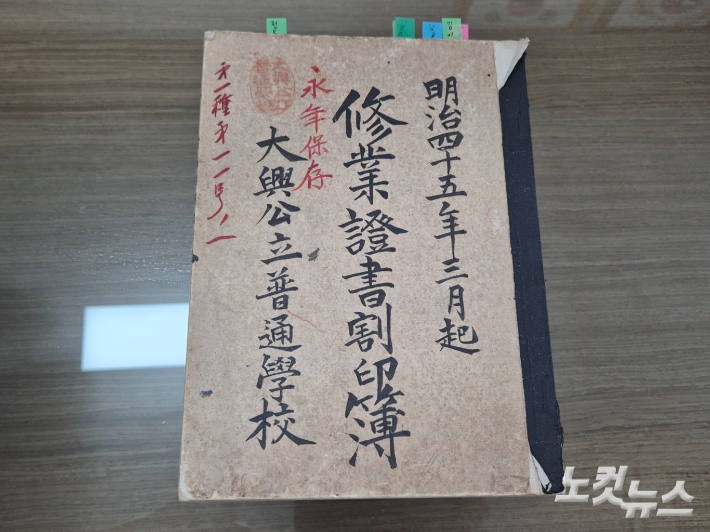 明治四十五年三月起
修業證書割印簿
永年保存
大興公立普通學校
才一種才一一号ノ一
노컷뉴스